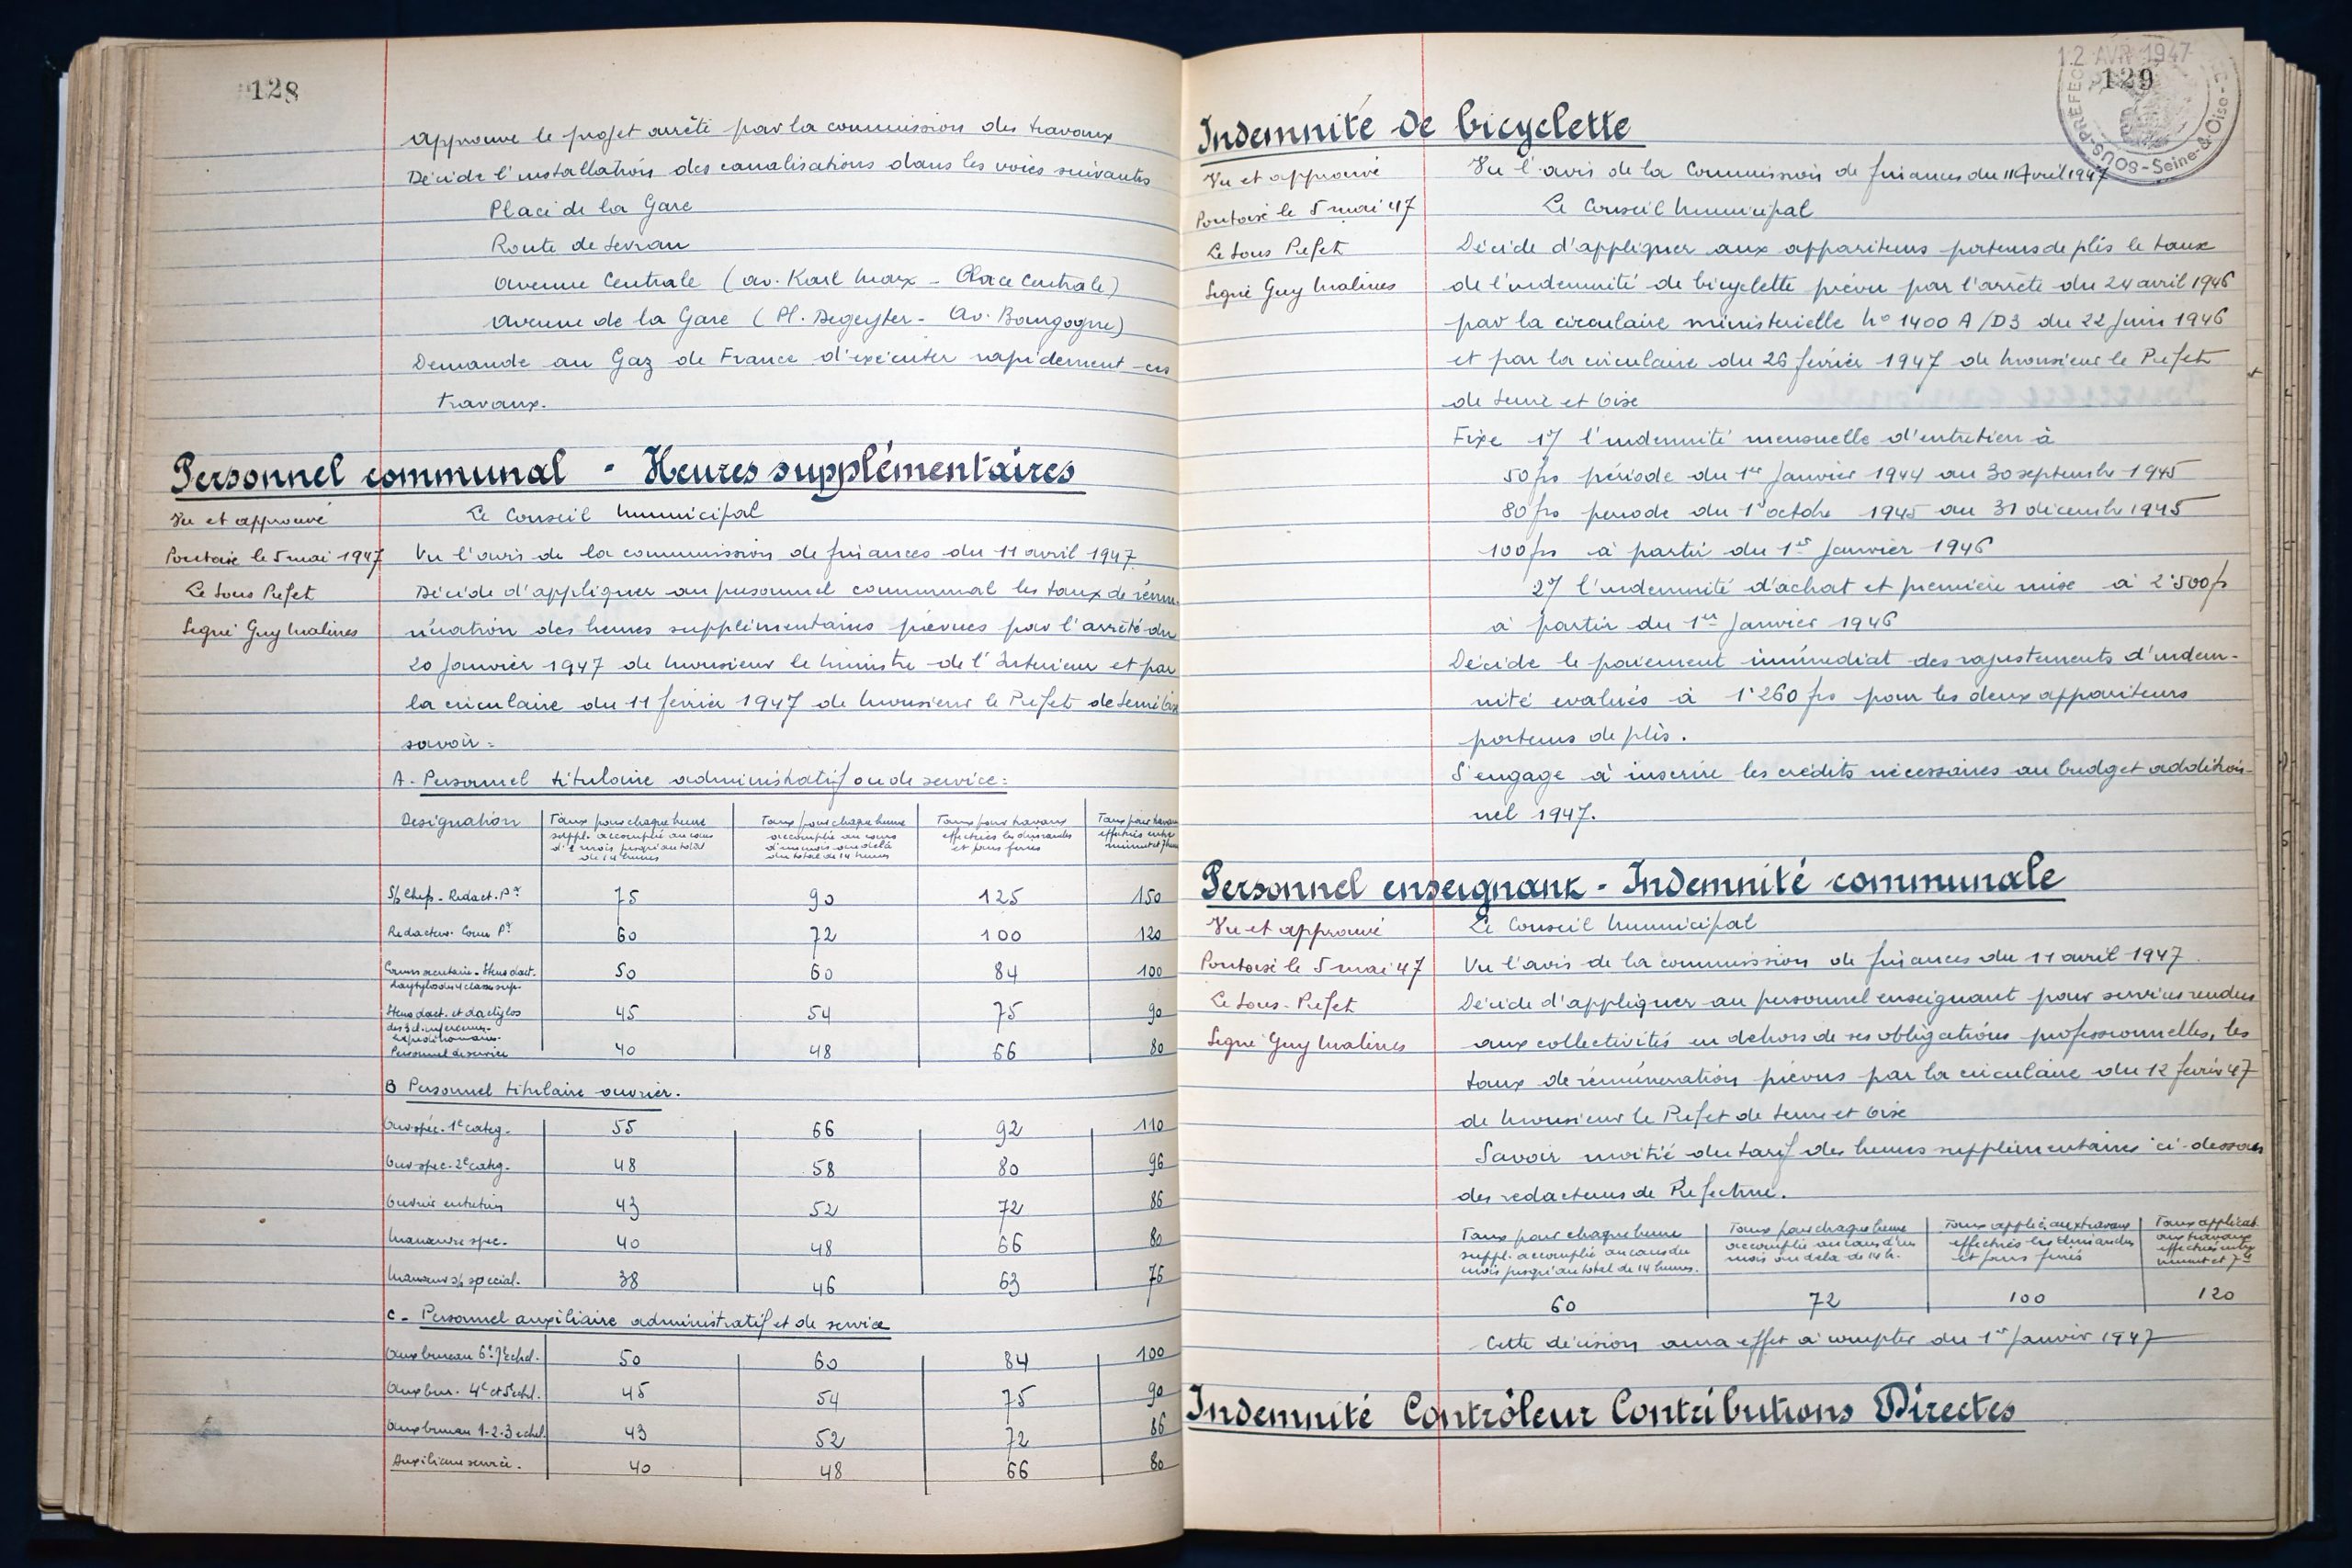 128
approuve le projet arrêté par la commission des travaux
Décide l'installation des canalisations dans les voies suivantes
Place de la Gare
Route de Sevran
avenue Centrale (av. Karl Marx - Place Centrale)
avenue de la Gare (Pl. Degeyter - av. Bourgogne)
Demande au Gaz de France d'exécuter rapidement ces
travaux.
Personnel communal - Heures supplémentaires
Vu et approuvé
Pontoise le 5 mai 1947
Le Sous Préfet
Signé Guy Malines
Le Conseil Municipal
Vu l'avis de la commission de finances du 11 avril 1947
Décide d'appliquer au personnel communal les taux de rému-
nération des heures supplémentaires prévues par l'arrêté du
20 Janvier 1947 de Monsieur le Ministre de l'Intérieur et par
la circulaire du 11 février 1947 de Monsieur le Préfet de Seine & Oise
savoir :
A - Personnel titulaire administratif ou de service :
Désignation | Taux pour chaque heure suppl. accomplie au cours d'1 mois jusqu'au total de 14 heures | Taux pour chaque heure accomplie au cours d'un mois au delà du total de 14 heures | Taux pour travaux effectués les dimanches et jours fériés | Taux pour travaux effectués entre minuit et 7 heures
S/s Chefs - Rédact. Pal 75 90 125 150
Rédacteur - Comm Pal 60 72 100 120
Commis secrétaire - Sténo dact. dactylo du 4 classe sup. 50 60 84 100
Sténo dact. et dactylos des 3 cl. inférieures - expéditionnaires 45 54 75 90
Personnel de service 40 48 66 80
B Personnel titulaire ouvrier.
Ouv spéc. 1e catég. 55 66 92 110
Ouv spéc. 2e catég. 48 58 80 96
Ouvrier entretien 43 52 72 86
Manœuvre spéc. 40 48 66 80
Manœuv s/s spécial. 38 46 63 76
C - Personnel auxiliaire administratif et de service
Aux bureau 6e 7e échel. 50 60 84 100
Aux bur. 4e et 5e échel. 45 54 75 90
Aux bureau 1-2-3 échel. 43 52 72 86
Auxiliaire service. 40 48 66 80
12 AVR 1947
129
SOUS-PRÉFEC
Seine-&-Oise
Indemnité de bicyclette
Vu et approuvé
Pontoise le 5 mai 47
Le Sous Préfet
Signé Guy Malines
Vu l'avis de la Commission de finances du 11 Avril 1947
Le Conseil Municipal
Décide d'appliquer aux appariteurs porteurs de plis le taux
de l'indemnité de bicyclette prévu par l'arrêté du 24 avril 1946
par la circulaire ministérielle No 1400 A/D3 du 22 Juin 1946
et par la circulaire du 26 février 1947 de Monsieur le Préfet
de Seine et Oise
Fixe 1°/ l'indemnité mensuelle d'entretien à
50 frs période du 1er Janvier 1944 au 30 septembre 1945
80 frs période du 1er octobre 1945 au 31 décembre 1945
100 frs à partir du 1er Janvier 1946
2°/ l'indemnité d'achat et première mise à 2'500 fs
à partir du 1er Janvier 1946
Décide le paiement immédiat des rajustements d'indem-
nité évalués à 1'260 frs pour les deux appariteurs
porteurs de plis.
S'engage à inscrire les crédits nécessaires au budget addition-
nel 1947.
Personnel enseignant - Indemnité communale
Vu et approuvé
Pontoise le 5 mai 47
Le Sous-Préfet
Signé Guy Malines
Le Conseil Municipal
Vu l'avis de la commission de finances du 11 avril 1947
Décide d'appliquer au personnel enseignant pour services rendus
aux collectivités en dehors de ses obligations professionnelles, les
taux de rémunération prévus par la circulaire du 12 février 47
de Monsieur le Préfet de Seine et Oise
Savoir moitié du tarif des heures supplémentaires ci-dessous
des rédacteurs de Préfecture.
Taux pour chaque heure suppl. accomplie au cours du mois jusqu'au total de 14 heures. | Taux pour chaque heure accomplie au cours d'un mois au delà de 14 h. | Taux applic. aux travaux effectués les dimanches et jours fériés | Taux applicat. aux travaux effectués entre minuit et 7 h
60 72 100 120
Cette décision aura effet à compter du 1er Janvier 1947
Indemnité Contrôleur Contributions Directes